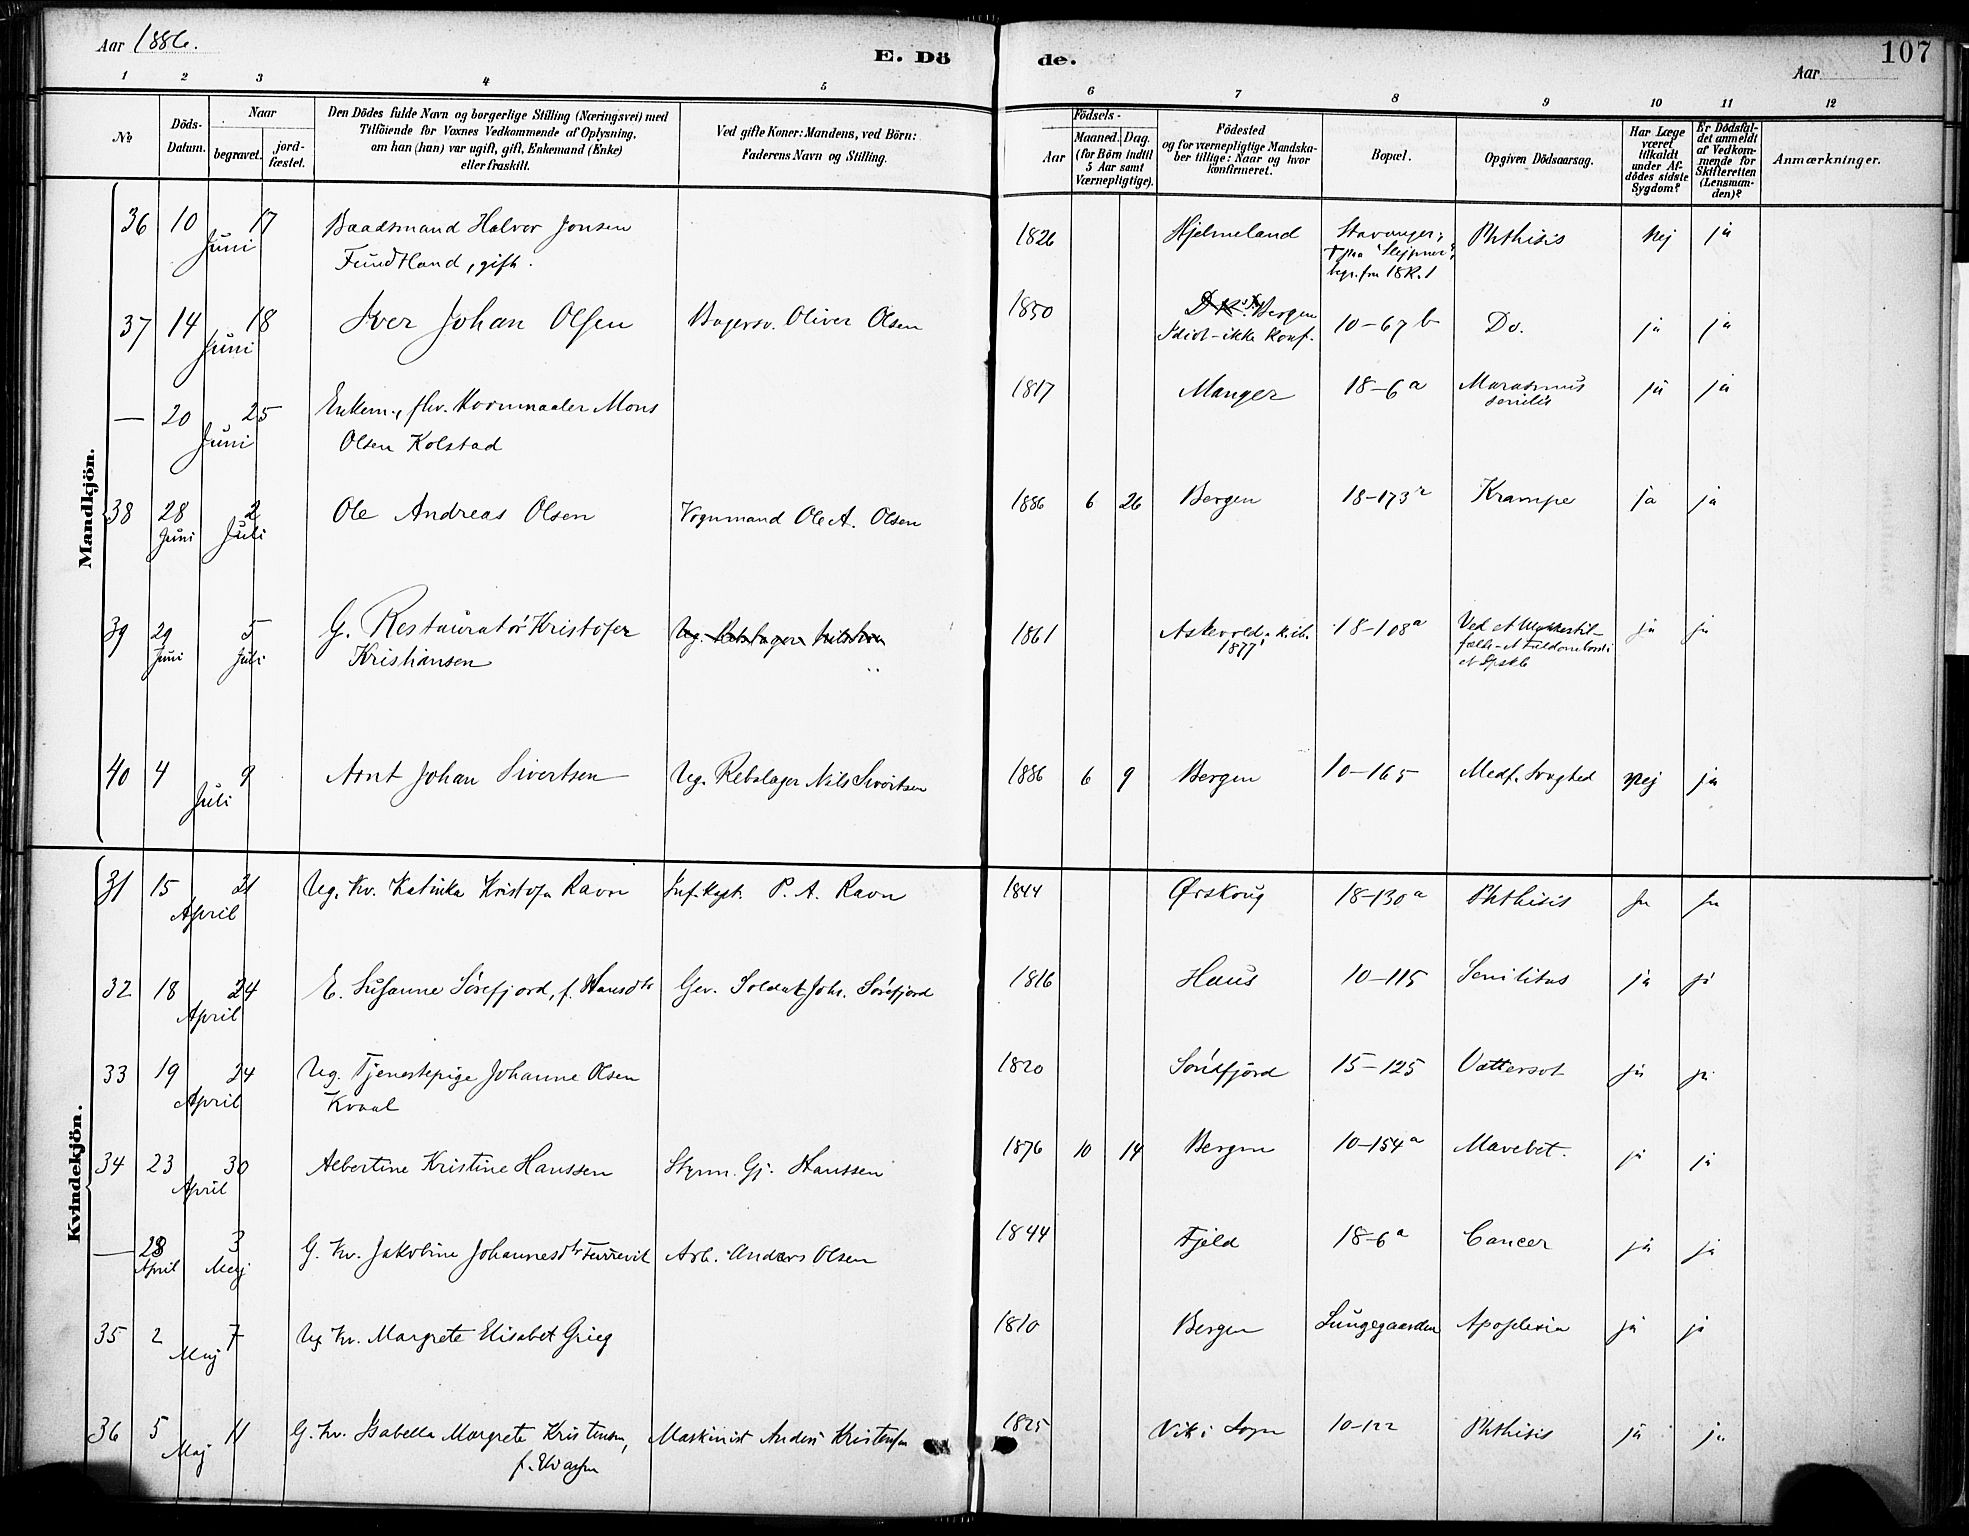 Aar 1886.
E. Dö
de.
Aar
107
1 2 3 4 5 6 7 8 9 10 11 12
No
Döds-Datum.
Naar
begravet.
jord-fæstet.
Den Dödes fulde Navn og borgerlige Stilling (Næringsvei) med
Tilföiende for Voxnes Vedkommende af Oplysning,
om han (hun) var ugift, gift, Enkemand (Enke)
eller fraskilt.
Ved gifte Koner: Mandens, ved Börn:
Faderens Navn og Stilling.
Födsels-
Aar
Maaned. Dag.
(for Börn indtil
5 Aar samt
Værnepligtige).
Födested
og for værnepligtige Mandska-
ber tillige: Naar og hvor
konfirmeret.
Bopæl.
Opgiven Dödsaarsag.
Har Læge
været
tilkaldt
under Af-
dödes sidste
Sygdom?
Er Dödsfal-
det anmeldt
af Vedkom-
mende for
Skifteretten
(Lensman-
den)?
Anmærkninger.
Mandkjön.
36 10 17 Juni Baadsmand Halvor Jonsen 1826 Hjelmeland Stavanger; Phthisis Nej ja
Fundtland, gift.
begr. fra 18R.1
37 14 18 Juni Iver Johan Olsen Bagersv. Oliver Olsen 1850 Bergen 10-67 b Do. ja ja
Idiot-ikke konf.
— 20 25 Juni Enkem., fhv. Kornmaaler Mons 1817 Manger 18-6 a Marasmus ja ja
Olsen Kolstad senilis
38 28 Juni 2 Juli Ole Andreas Olsen Vognmand Ole A. Olsen 1886 6 26 Bergen 18-173 Krampe ja ja
39 29 Juni 5 Juli G. Restauratör Kristofer 1861 Askevold 18-108 a Ved et ja ja
Kristiansen 1877
40 4 9 Juli Arnt Johan Sivertsen Ug. Rebslager Nils Sivertsen 1886 6 9 Bergen 10-165 Medf. Svaghed Nej ja
Kvindekjön.
31 15 21 April Ug. Kv. Katinka Kristofa Ravn Inf. Kapt. P. A. Ravn 1844 Ørskoug 18-130 a Phthisis ja ja
32 18 24 April E. Susanne Sörefjord, f. Hansdtr Gev. Soldat Joh. Sörefjord 1816 Haus 10-115 Senilitas ja ja
33 19 24 April Ug. Tjenestepige Johanne Olsen 1820 Söndfjord 15-125 Vattersot ja ja
Kvaal
34 23 30 April Albertine Kristine Hanssen Styrm. Gj. Hanssen 1876 10 14 Bergen 10-154 a Mavebet. ja ja
— 28 April 3 Maj G. Kv. Jakobine Johannesdtr Arb. Anders Olsen 1844 Fjeld 18-6 a Cancer ja ja
35 2 7 Maj Ug Kv. Margrete Elisabet Grieg 1810 Bergen Lungegaarden Apoplexia ja ja
36 5 11 Maj G. Kv. Isabella Margrete Kristensen, Maskinist Anders Kristensen 1825 Vik i Sogn 10-122 Phthisis ja ja